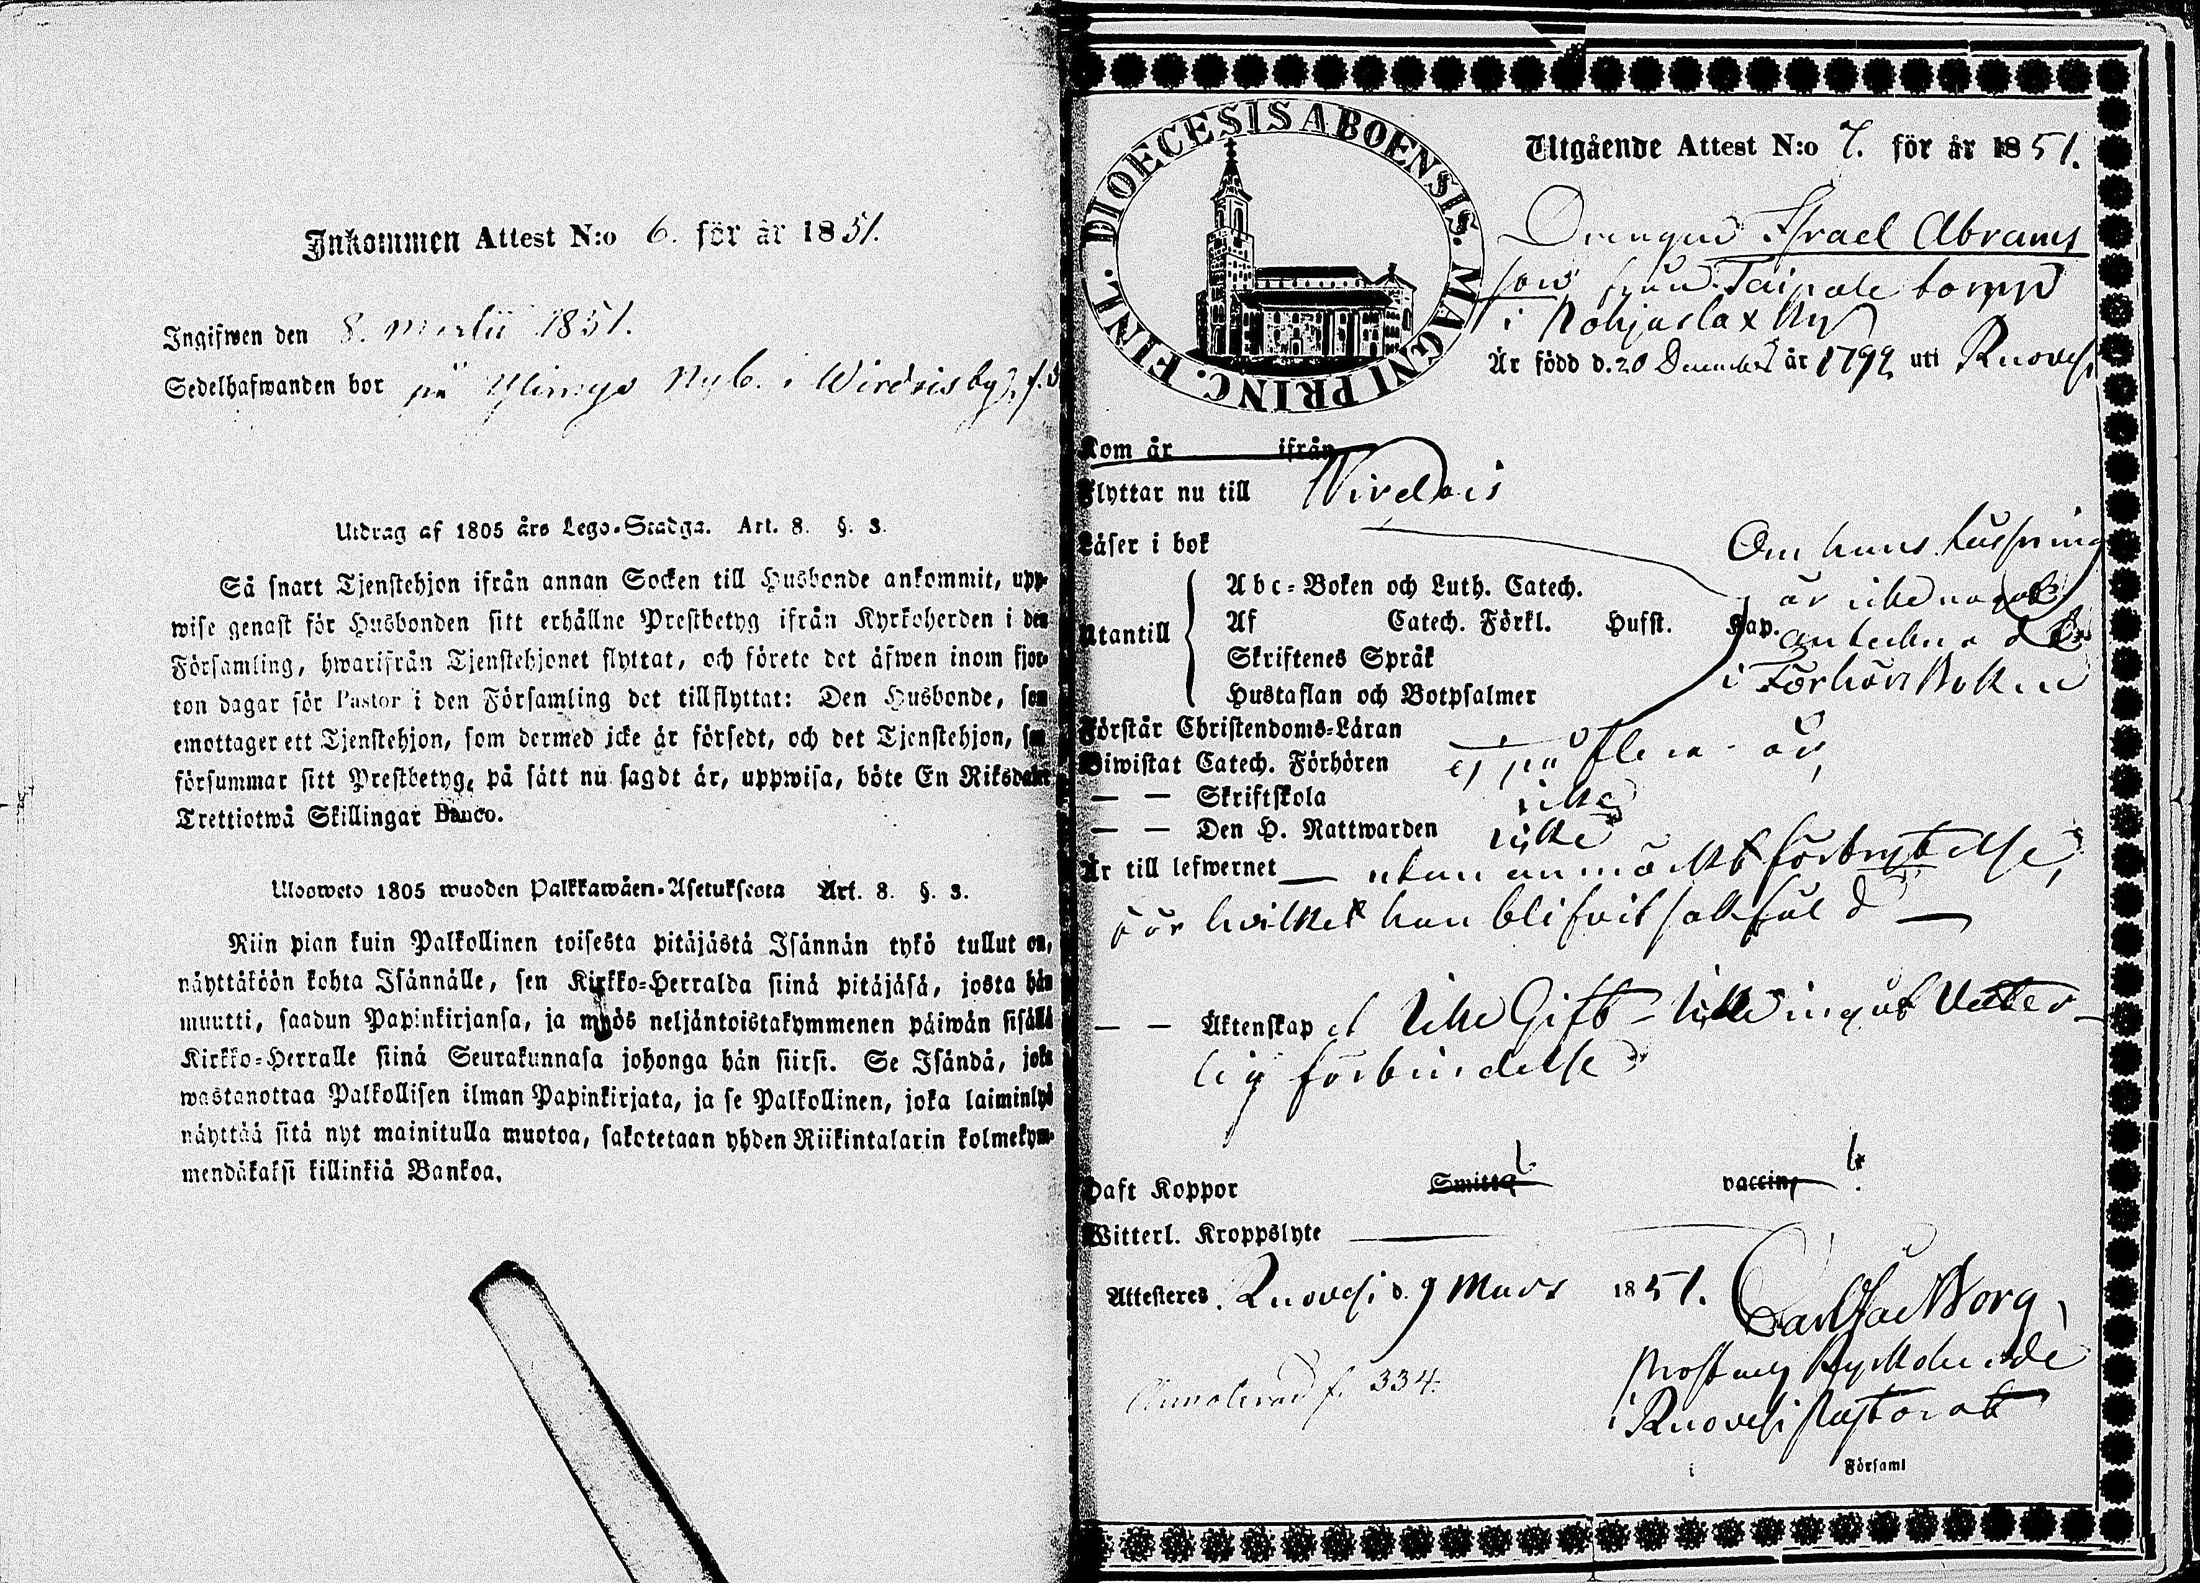 Inkommen Attest N:o 6. för år 1851.
Ingifwen den 8. Martii 1851.
Sedelhafwanden bor på Ylimys Nyb. i Wirdois by
Utdrag af 1805 års Lego-Stadga. Art. 8. §. 3.
Så snart Tjenstehjon ifrån annan Socken till Husbonde ankommit, upp-
wise genast för Husbonden sitt erhållne Prestbetyg ifrån Kyrkoherden i den
Församling, hwarifrån Tjenstehjonet flyttat, och förete det äfwen inom fjor-
ton dagar för Pastor i den Församling det tillflyttat: Den Husbonde, som
emottager ett Tjenstehjon, som dermed icke är försedt, och det Tjenstehjon, som
försummar sitt Prestbetyg, på sätt nu sagdt är, uppwisa, böte En Riksdaler
Trettiotwå Skillingar Banco.
Ulosweto 1805 wuoden Palkkawäen-Asetuksesta Art. 8. §. 3.
Niin pian kuin Palkollinen toisesta pitäjästä Isännän tykö tullut on,
näyttäköön kohta Isännälle, sen Kirkko-Herralda siinä pitäjäsä, josta hän
muutti, saadun Papinkirjansa, ja myös neljäntoistakymmenen päiwän sisällä
Kirkko-Herralle siinä Seurakunnasa johonga hän siirsi. Se Isändä, joka
wastanottaa Palkollisen ilman Papinkirjata, ja se Palkollinen, joka laiminlyö
näyttää sitä nyt mainitulla muotoa, sakotetaan yhden Riikintalarin kolmekym-
mendäkaksi killinkiä Bankoa.
DIOECESIS ABOENSIS. MAGNI PRINC. FINL.
Utgående Attest N:o 7. för år 1851.
Drengen Israel Abrams
son från Taipale torp
i Pohjaslax by
Är född d. 20 December år 1792 uti Ruovesi
Kom år ifrån
Flyttar nu till Wirdois
Läser i bok
Om hans läsning
är icke något
antecknadt
i Förhörs Boken
Utantill
Abc-Boken och Luth. Catech.
Af Catech. Förkl. Hufst. Kap.
Skriftenes Språk
Hustaflan och Botpsalmer
Förstår Christendoms-Läran
Biwistat Catech. Förhören ej på flera år,
— — Skriftskola icke
— — Den H. Nattwarden icke
Är till lefwernet — utan anmärkt förbrytelse,
för hvilket han blifvit sakfäld —
— — Äktenskap Icke Gift – icke ingåt Äkten-
lig förbindelse
Haft Koppor Smitt. vaccin.
Witterl. Kroppslyte
Attesteras. Ruovesi d. 9 Mars 1851.
Carl Jac Borg,
Prost och Kyrkoherde
i Ruovesi Pastorat
Annoterad f. 334.
i Församl